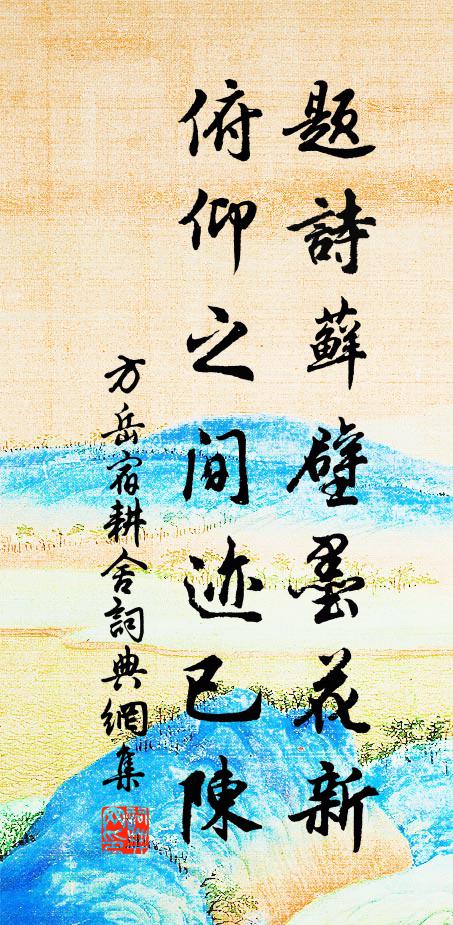 题詩蘚壁墨花新
俯仰之间迹已陳
方岳宿耕舍詞典網集